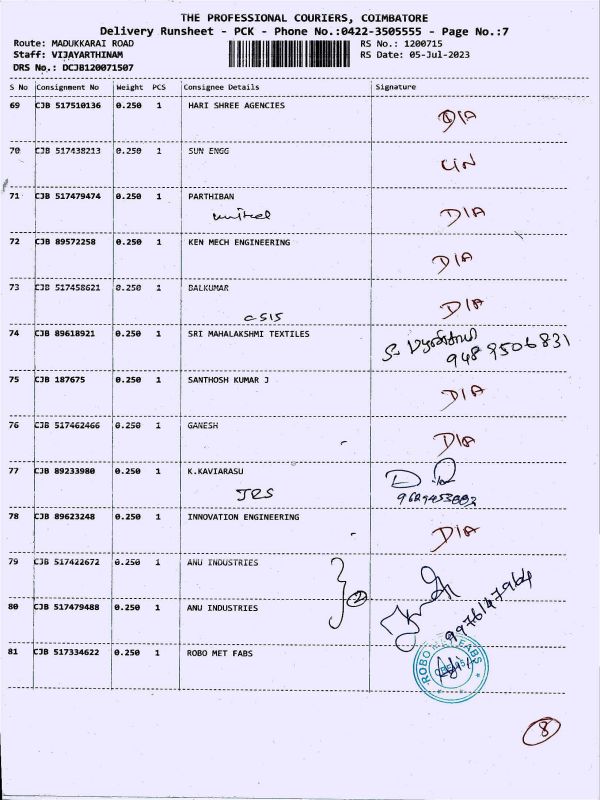 THE PROFESSIONAL COURIERS, COIMBATORE
Delivery Runsheet - PCK - Phone No.:0422-3505555 - Page No.:7
Route: MADUKKARAI ROAD RS No.: 1200715
Staff: VIJAYARTHINAM RS Date: 05-Jul-2023
DRS No.: DCJB120071507
S No Consignment No Weight PCS Consignee Details Signature
69 CJB 517510136 0.250 1 HARI SHREE AGENCIES DIA
70 CJB 517438213 0.250 1 SUN ENGG
71 CJB 517479474 0.250 1 PARTHIBAN DIA
united
72 CJB 89572258 0.250 1 KEN MECH ENGINEERING DIA
73 CJB 517458621 0.250 1 BALKUMAR DIA
CSIS
74 CJB 89618921 0.250 1 SRI MAHALAKSHMI TEXTILES
9489506831
75 CJB 187675 0.250 1 SANTHOSH KUMAR J DIA
76 CJB 517462466 0.250 1 GANESH DIA
77 CJB 89233980 0.250 1 K.KAVIARASU
JRS
78 CJB 89623248 0.250 1 INNOVATION ENGINEERING DIA
79 CJB 517422672 0.250 1 ANU INDUSTRIES
2
80 CJB 517479488 0.250 1 ANU INDUSTRIES
81 CJB 517334622 0.250 1 ROBO MET FABS
ROBO MET FABS
8